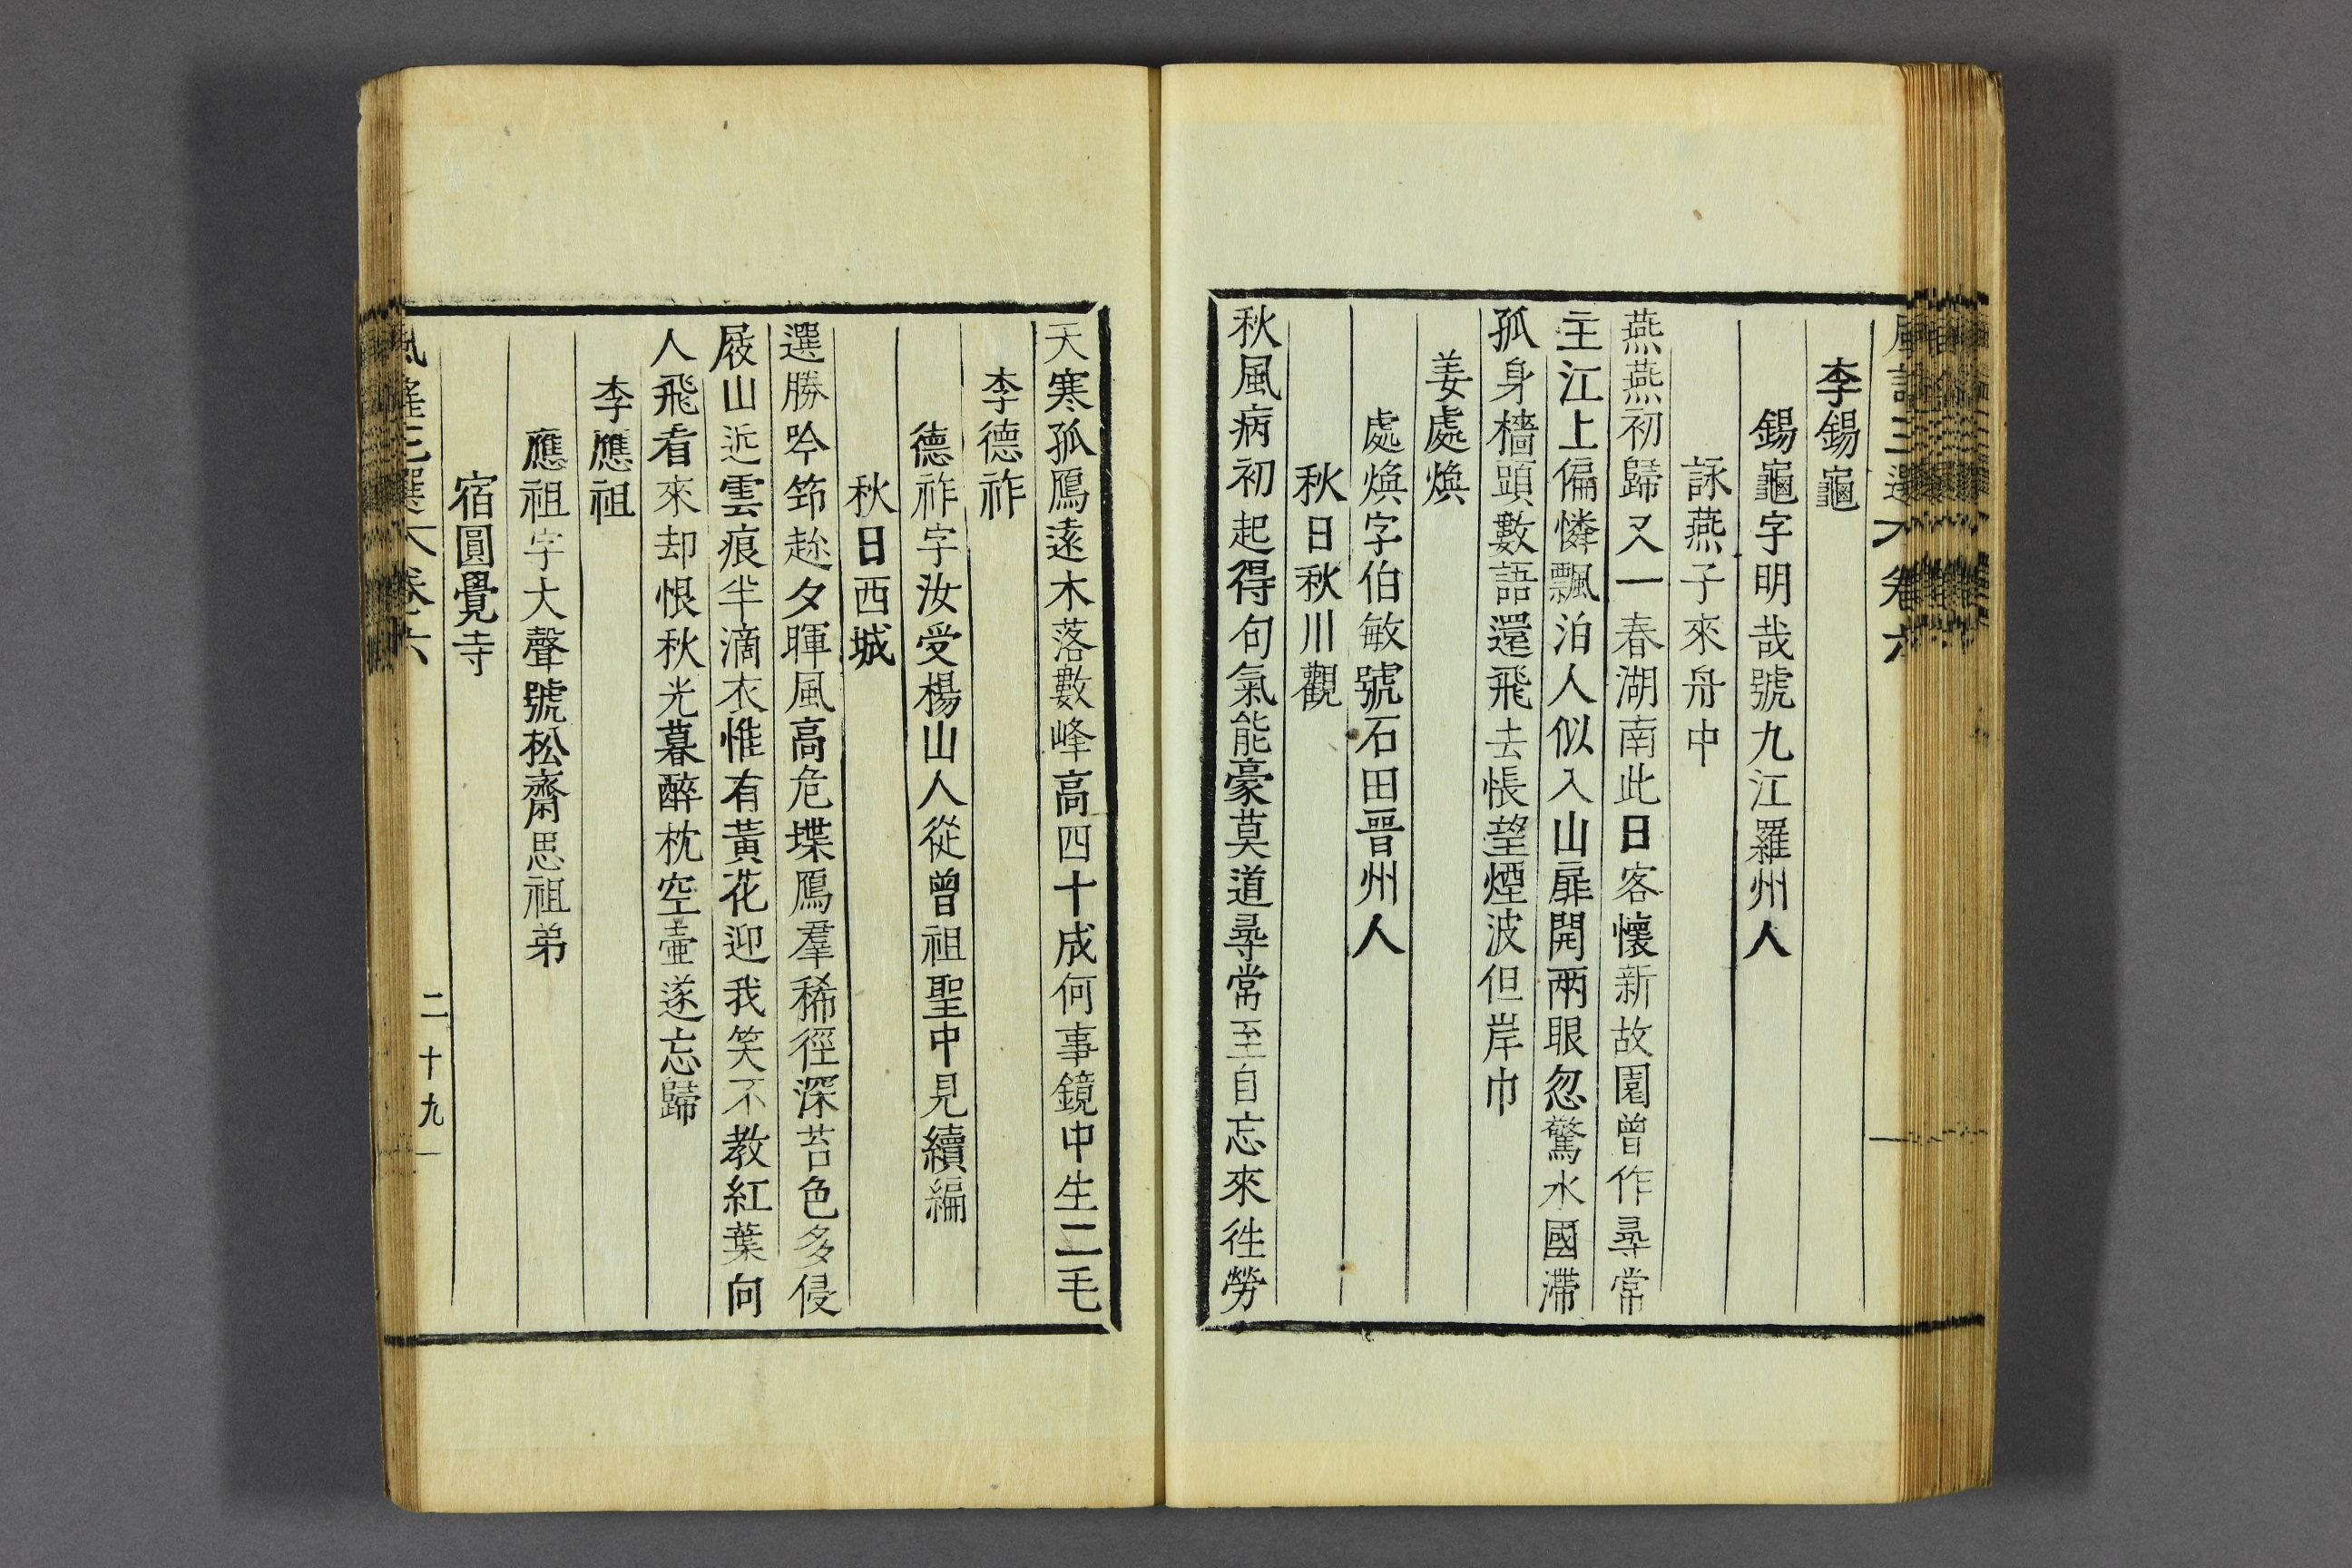 李錫龜
錫龜字明哉號九江羅州人
詠燕子來舟中
燕燕初歸又一春湖南此日客懷新故園曾作尋常
主江上偏憐飄泊人似入山扉開兩眼忽驚水國滯
孤身檣頭數語還飛去悵望煙波但岸巾
姜處煥
處煥字伯敏號石田晉州人
秋日秋川觀
秋風病初起得句氣能豪莫道尋常至自忘來徃勞
天寒孤鴈遠木落數峰高四十成何事鏡中生二毛
李德祚
德祚字汝受楊山人從曾祖聖中見續編
秋日西城
選勝吟筇趂夕暉風高危堞鴈羣稀徑深苔色多侵
屐山近雲痕半滴衣惟有黃花迎我笑不教紅葉向
人飛看來却恨秋光暮醉枕空壷遂忘歸
李應祖
應祖字大聲號松齋思祖弟
宿圓覺寺
卷六
二十九